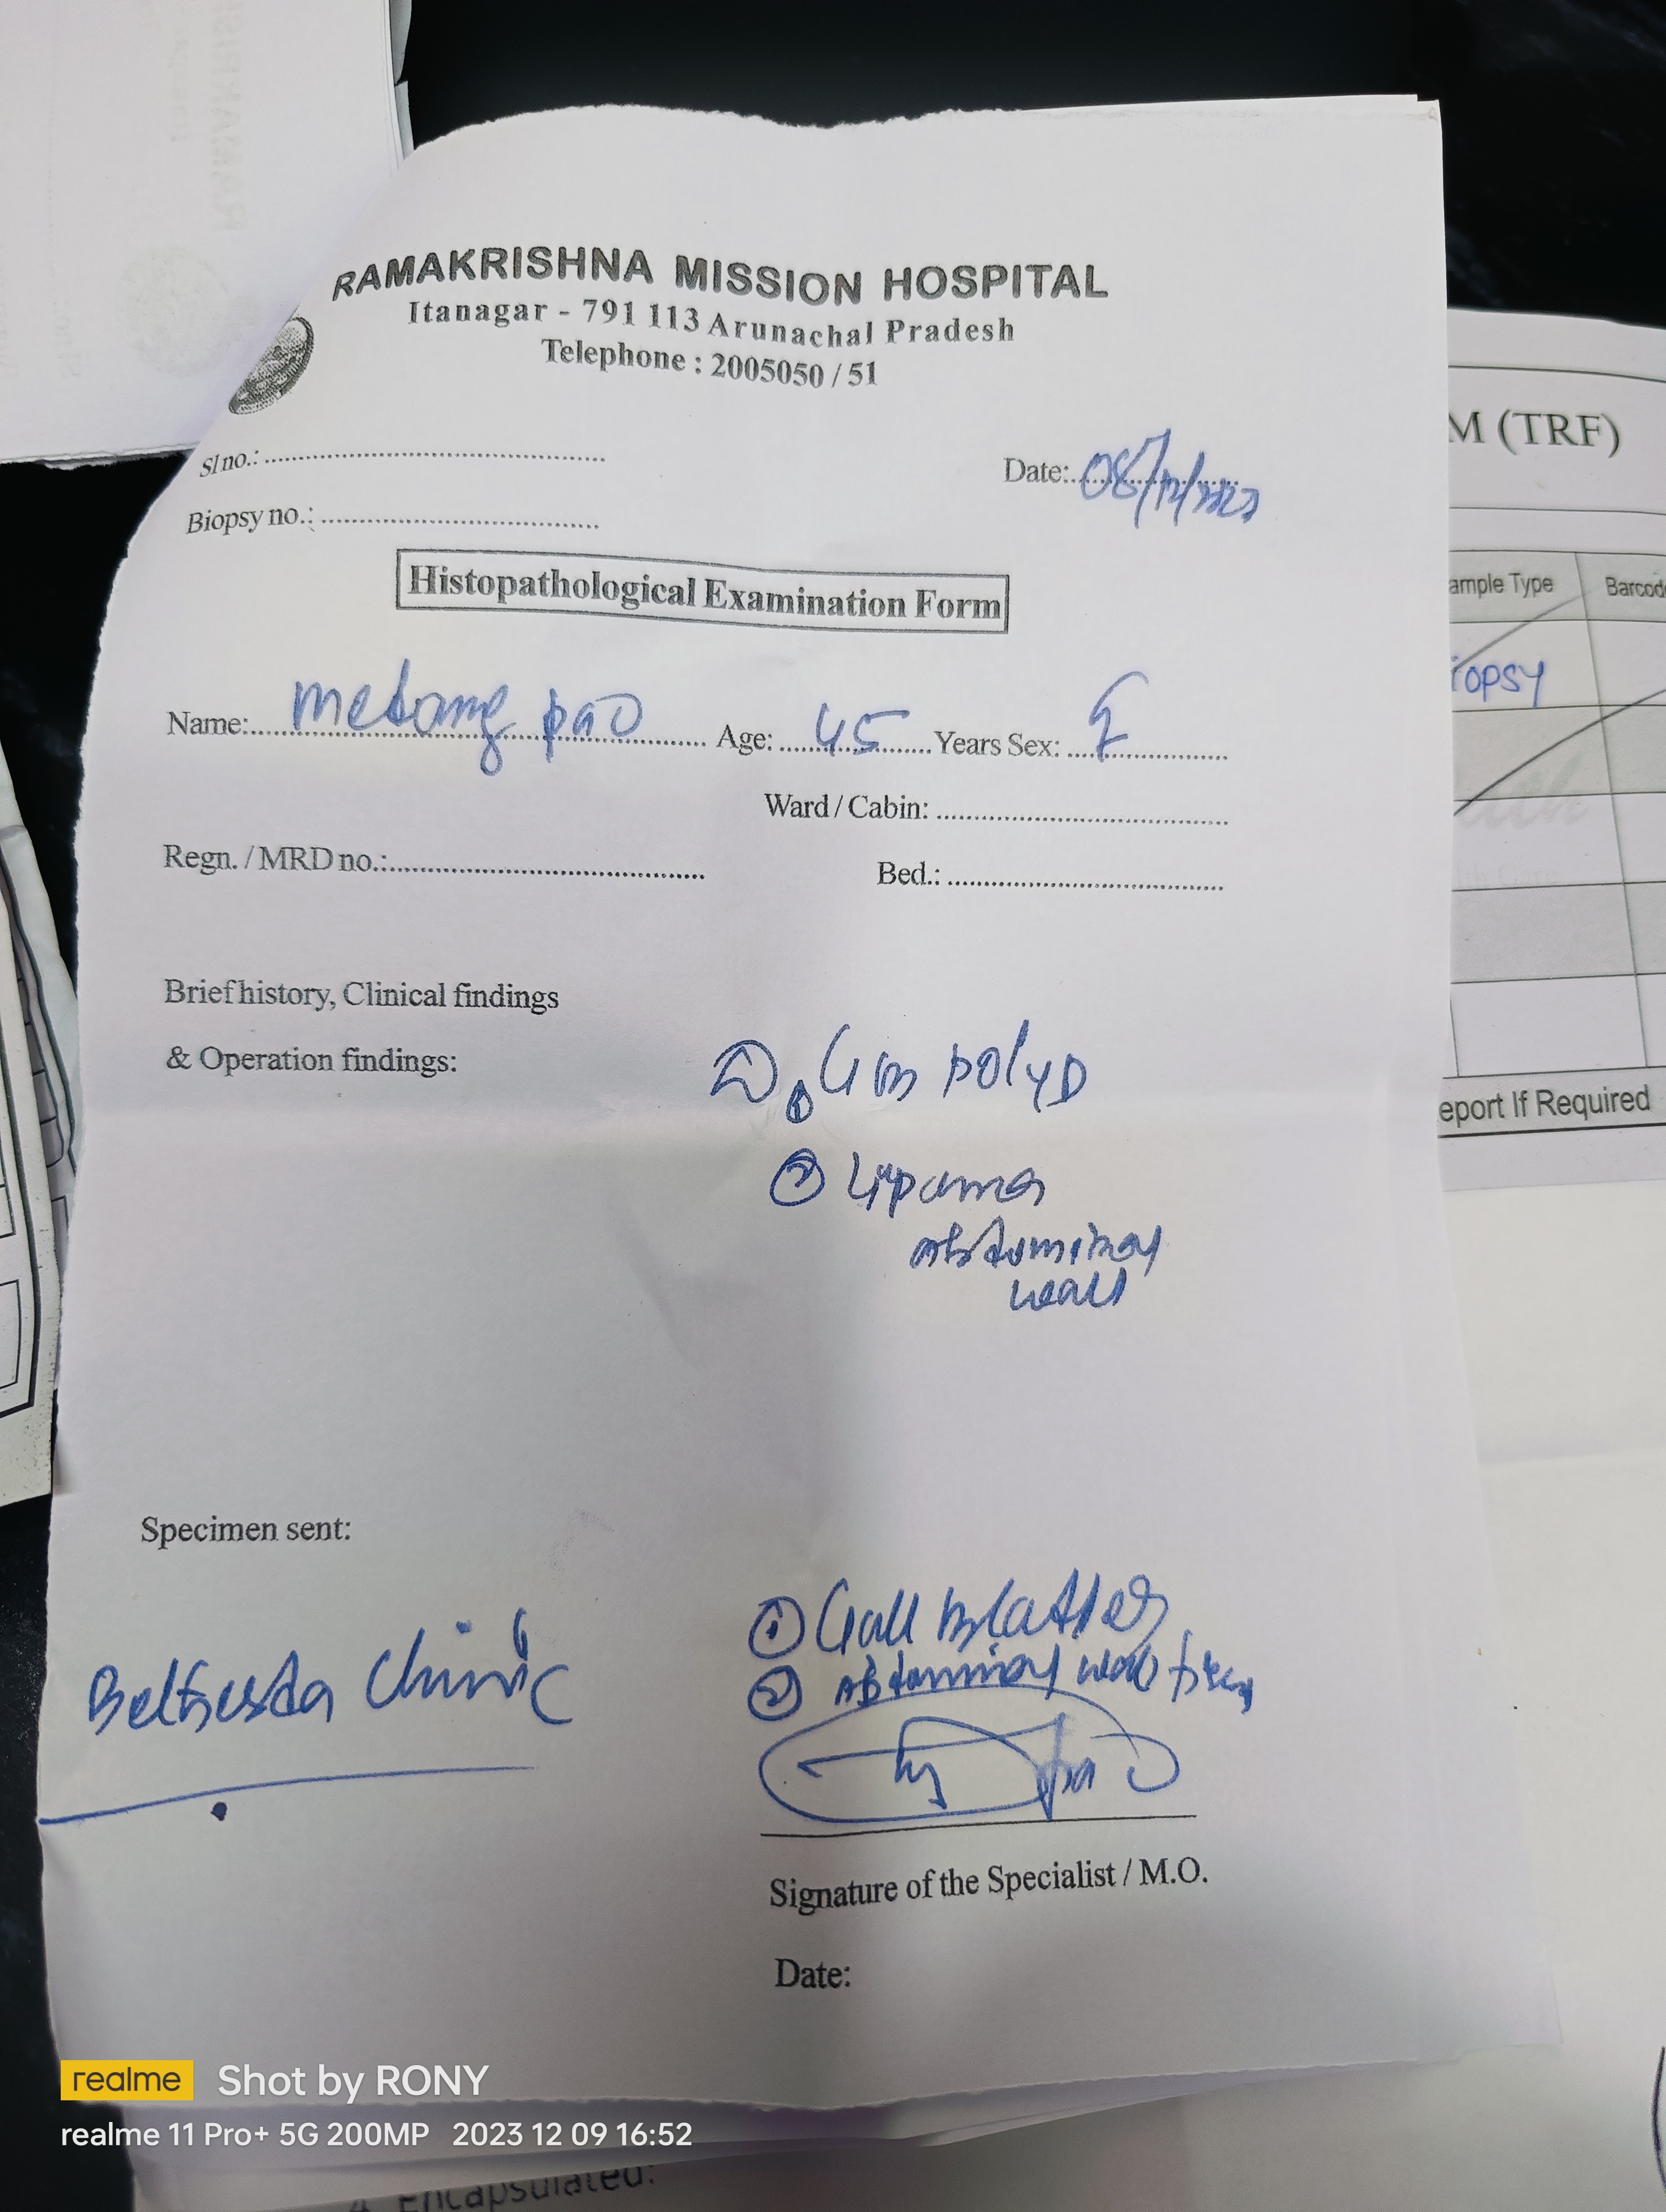 RAMAKRISHNA MISSION HOSPITAL
Itanagar - 791 113 Arunachal Pradesh
Telephone : 2005050 / 51
Sl no.:
Date: 08/12/2023
Biopsy no.:
Histopathological Examination Form
Name: Metang pao Age: 45 Years Sex: F
Ward / Cabin:
Regn. / MRD no.:
Bed.:
Brief history, Clinical findings
& Operation findings:
① polyp
② Lipoma
abdominal
wall
Specimen sent:
① Gall Bladder
② Abdominal wall
Bethesda Clinic
Signature of the Specialist / M.O.
Date:
M (TRF)
ample Type
Barcod
iopsy
eport If Required
4. Encapsulated:
realme Shot by RONY
realme 11 Pro+ 5G 200MP 2023 12 09 16:52